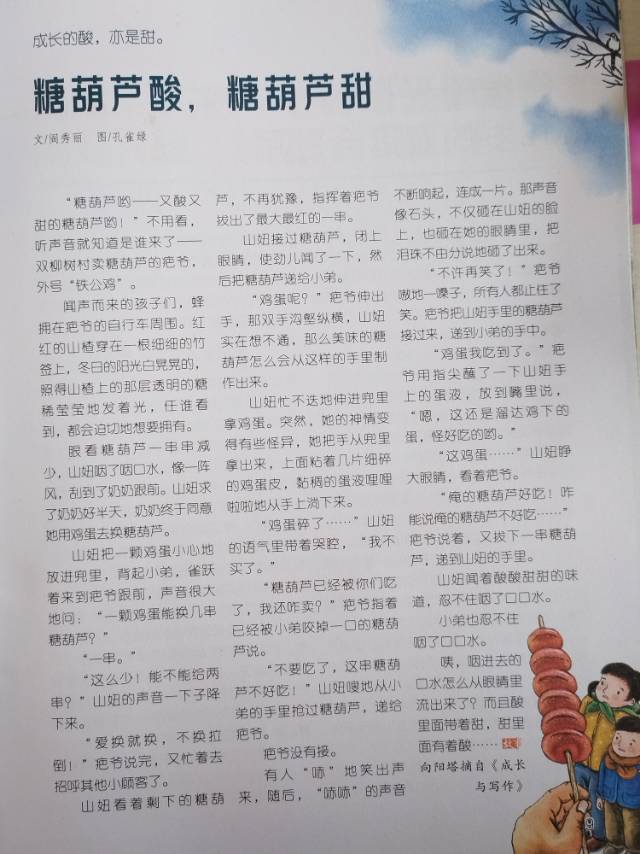 成长的酸，亦是甜。
糖葫芦酸，糖葫芦甜
文/阎秀丽 图/孔雀绿
“糖葫芦哟——又酸又
甜的糖葫芦哟！”不用看，
听声音就知道是谁来了——
双柳树村卖糖葫芦的疤爷，
外号“铁公鸡”。
闻声而来的孩子们，蜂
拥在疤爷的自行车周围。红
红的山楂穿在一根细细的竹
签上，冬日的阳光白晃晃的，
照得山楂上的那层透明的糖
稀莹莹地发着光，任谁看
到，都会迫切地想要拥有。
眼看糖葫芦一串串减
少，山妞咽了咽口水，像一阵
风，刮到了奶奶跟前。山妞求
了奶奶好半天，奶奶终于同意
她用鸡蛋去换糖葫芦。
山妞把一颗鸡蛋小心地
放进兜里，背起小弟，雀跃
着来到疤爷跟前，声音很大
地问：“一颗鸡蛋能换几串
糖葫芦？”
“一串。”
“这么少！能不能给两
串？”山妞的声音一下子降
下来。
“爱换就换，不换拉
倒！”疤爷说完，又忙着去
招呼其他小顾客了。
山妞看着剩下的糖葫
芦，不再犹豫，指挥着疤爷
拔出了最大最红的一串。
山妞接过糖葫芦，闭上
眼睛，使劲儿闻了一下，然
后把糖葫芦递给小弟。
“鸡蛋呢？”疤爷伸出
手，那双手沟壑纵横，山妞
实在想不通，那么美味的糖
葫芦怎么会从这样的手里制
作出来。
山妞忙不迭地伸进兜里
拿鸡蛋。突然，她的神情变
得有些怪异，她把手从兜里
拿出来，上面粘着几片细碎
的鸡蛋皮，黏稠的蛋液哩哩
啦啦地从手上淌下来。
“鸡蛋碎了……”山妞
的语气里带着哭腔，“我不
买了。”
“糖葫芦已经被你们吃
了，我还咋卖？”疤爷指着
已经被小弟咬掉一口的糖葫
芦说。
“不要吃了，这串糖葫
芦不好吃！”山妞嗖地从小
弟的手里抢过糖葫芦，递给
疤爷。
疤爷没有接。
有人“哧”地笑出声
来，随后，“哧哧”的声音
不断响起，连成一片。那声音
像石头，不仅砸在山妞的脸
上，也砸在她的眼睛里，把
泪珠不由分说地砸了出来。
“不许再笑了！”疤爷
嗷地一嗓子，所有人都止住了
笑。疤爷把山妞手里的糖葫芦
接过来，递到小弟的手中。
“鸡蛋我吃到了。”疤
爷用指尖蘸了一下山妞手
上的蛋液，放到嘴里说，
“嗯，这还是溜达鸡下的
蛋，怪好吃的哟。”
“这鸡蛋……”山妞睁
大眼睛，看着疤爷。
“俺的糖葫芦好吃！咋
能说俺的糖葫芦不好吃……”
疤爷说着，又拔下一串糖葫
芦，递到山妞的手里。
山妞闻着酸酸甜甜的味
道，忍不住咽了口口水。
小弟也忍不住
咽了口口水。
咦，咽进去的
口水怎么从眼睛里
流出来了？而且酸
里面带着甜，甜里
面有着酸……
向阳塔摘自《成长
与写作》
9